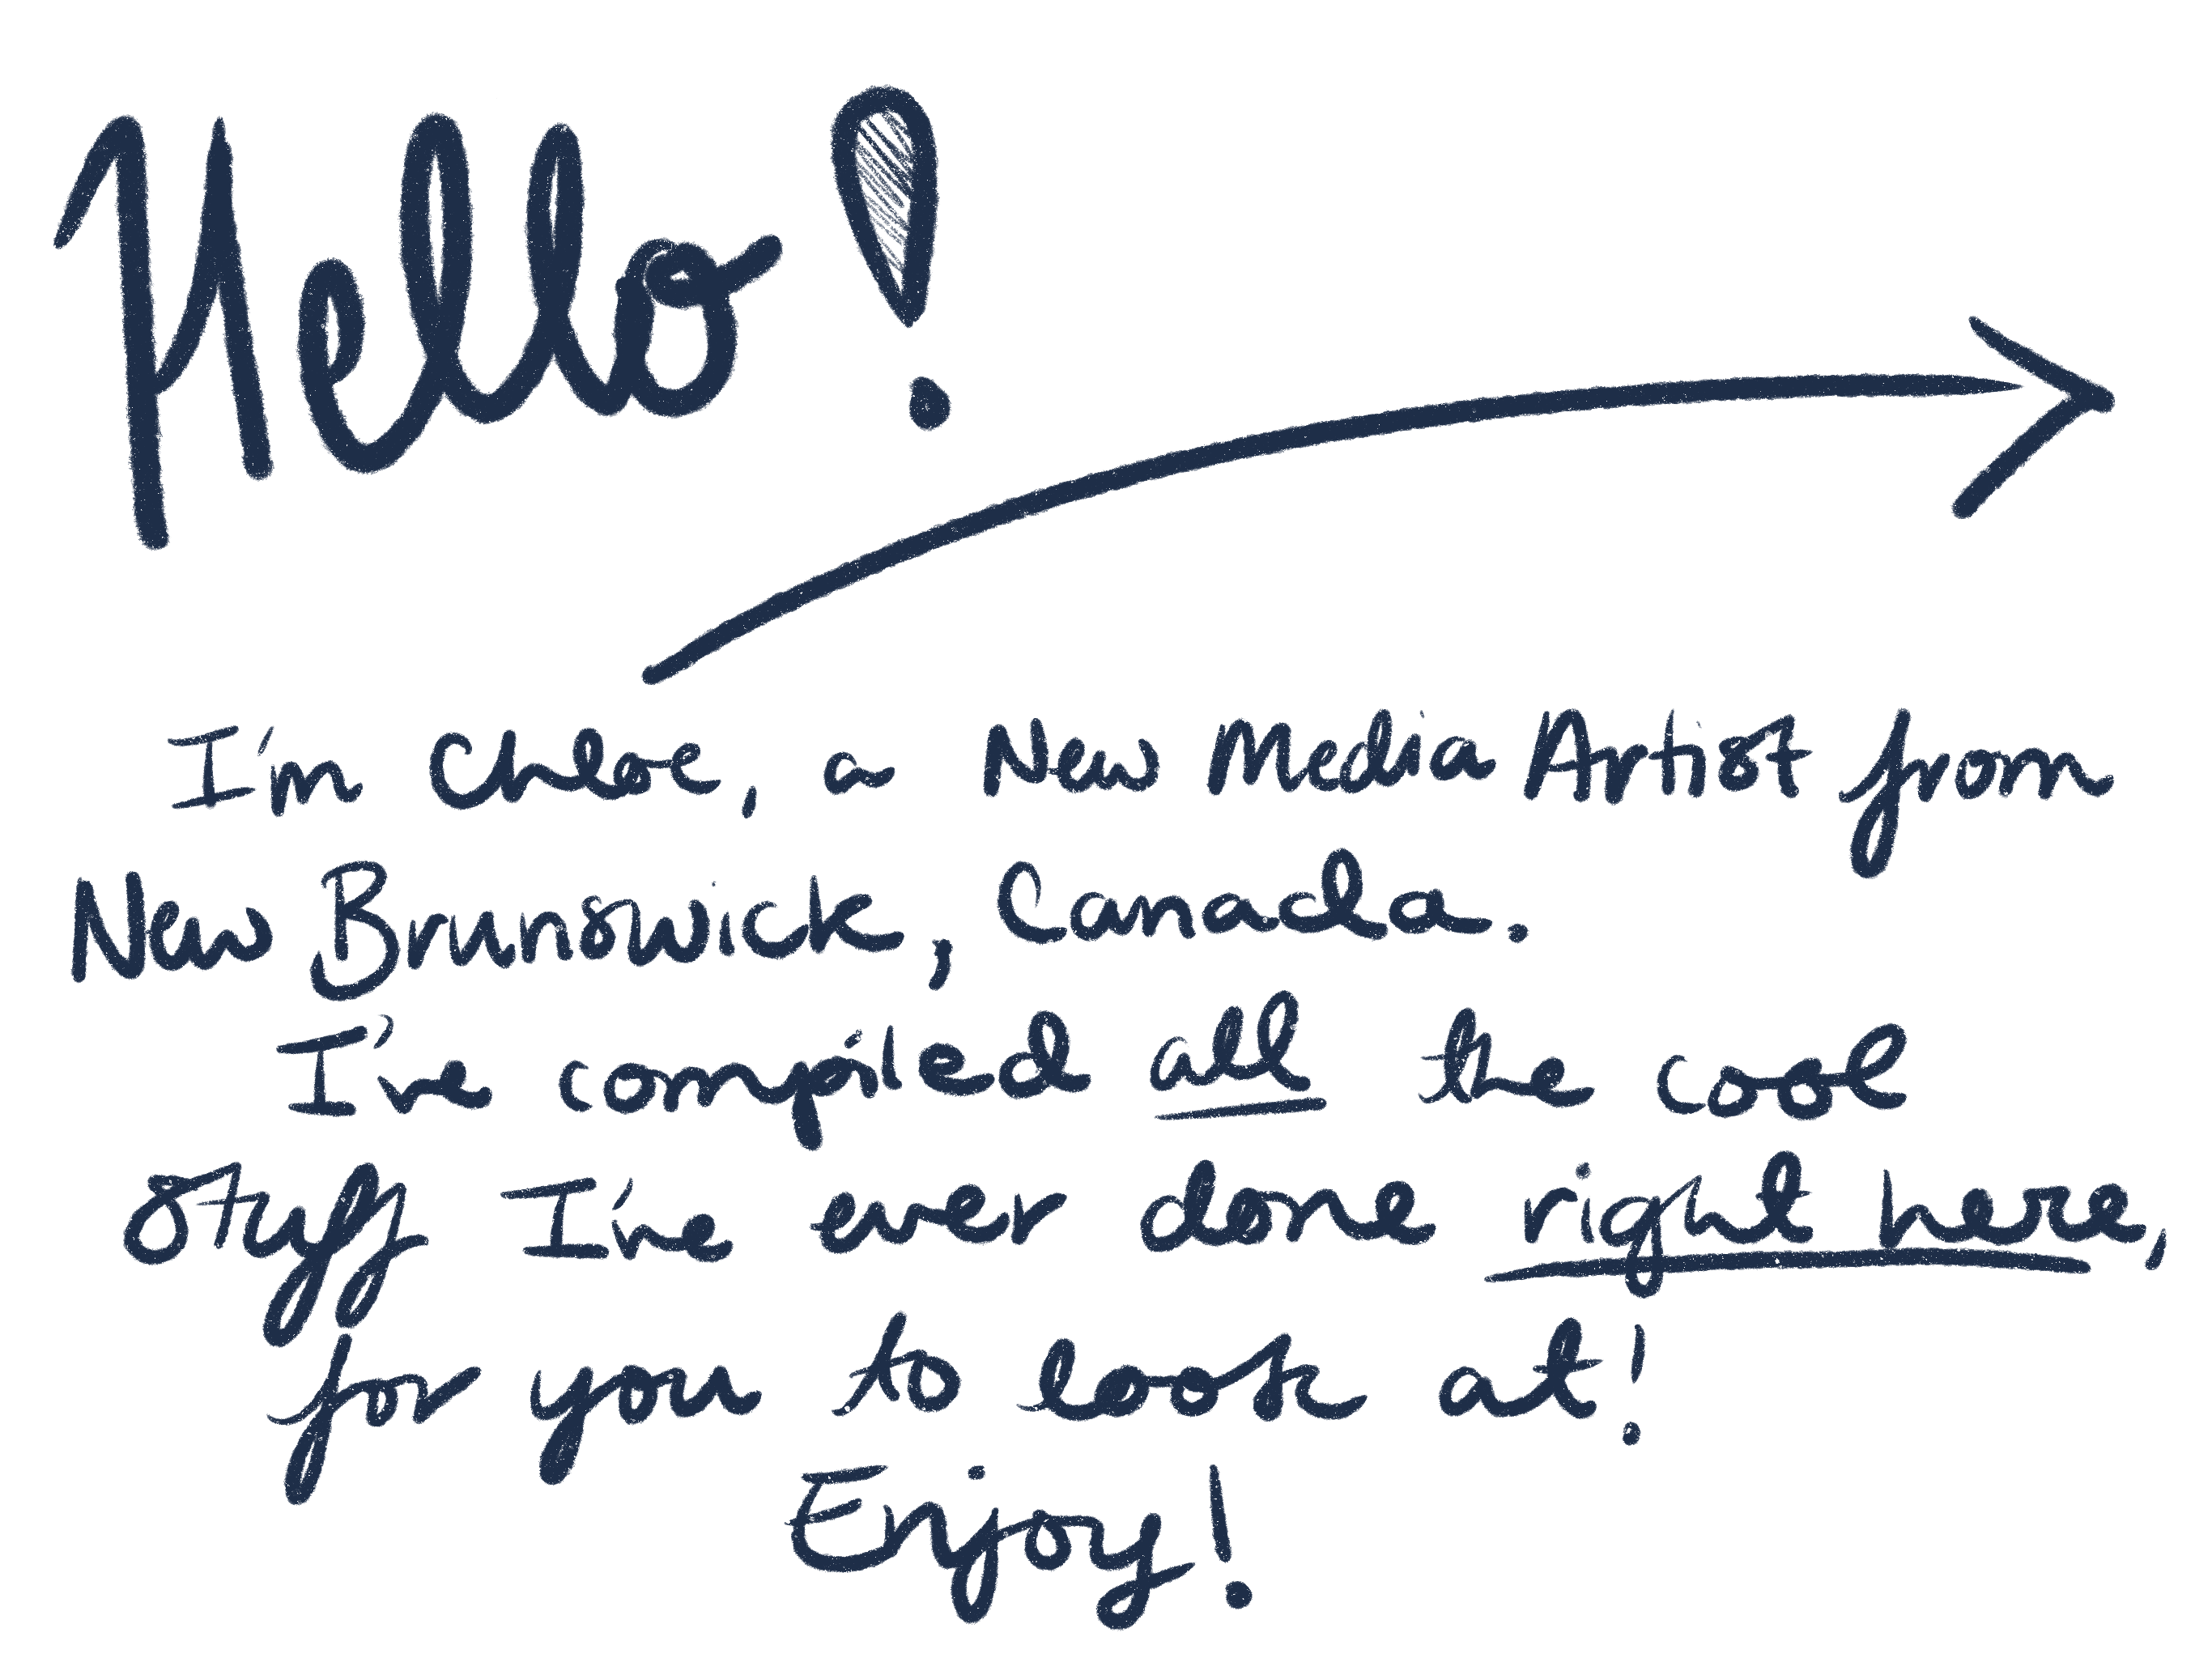 Hello!
I'm Chloe, a New Media Artist from
New Brunswick, Canada.
I've compiled all the cool
stuff I've ever done right here,
for you to look at!
Enjoy!